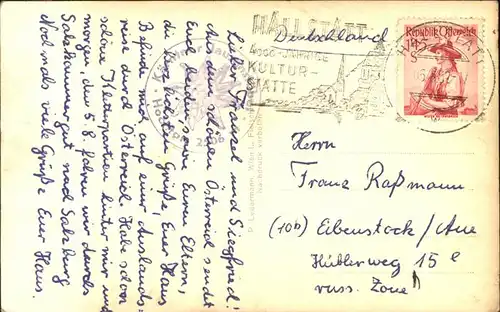 Lieber Franzel und Siegfried!
Aus dem schönen Österreich sendet
Euch beiden sowie Euren Eltern,
die herzlichsten Grüße, Euer Hans
Befinde mich auf einer Auslands-
reise durch Österreich. Habe schon
schöne Kletterpartien hinter mir und
morgen, den 5.8. fahren wir durchs
Salzkammergut nach Salzburg
Nochmals viele Grüße Euer Hans.
Deutschland
HALLSTATT
KULTUR-
STÄTTE
Republik Österreich
1.45 S
Herrn
Franz Raßmann
(10b) Eibenstock/Aue
Hüblerweg 15 e
russ. Zone